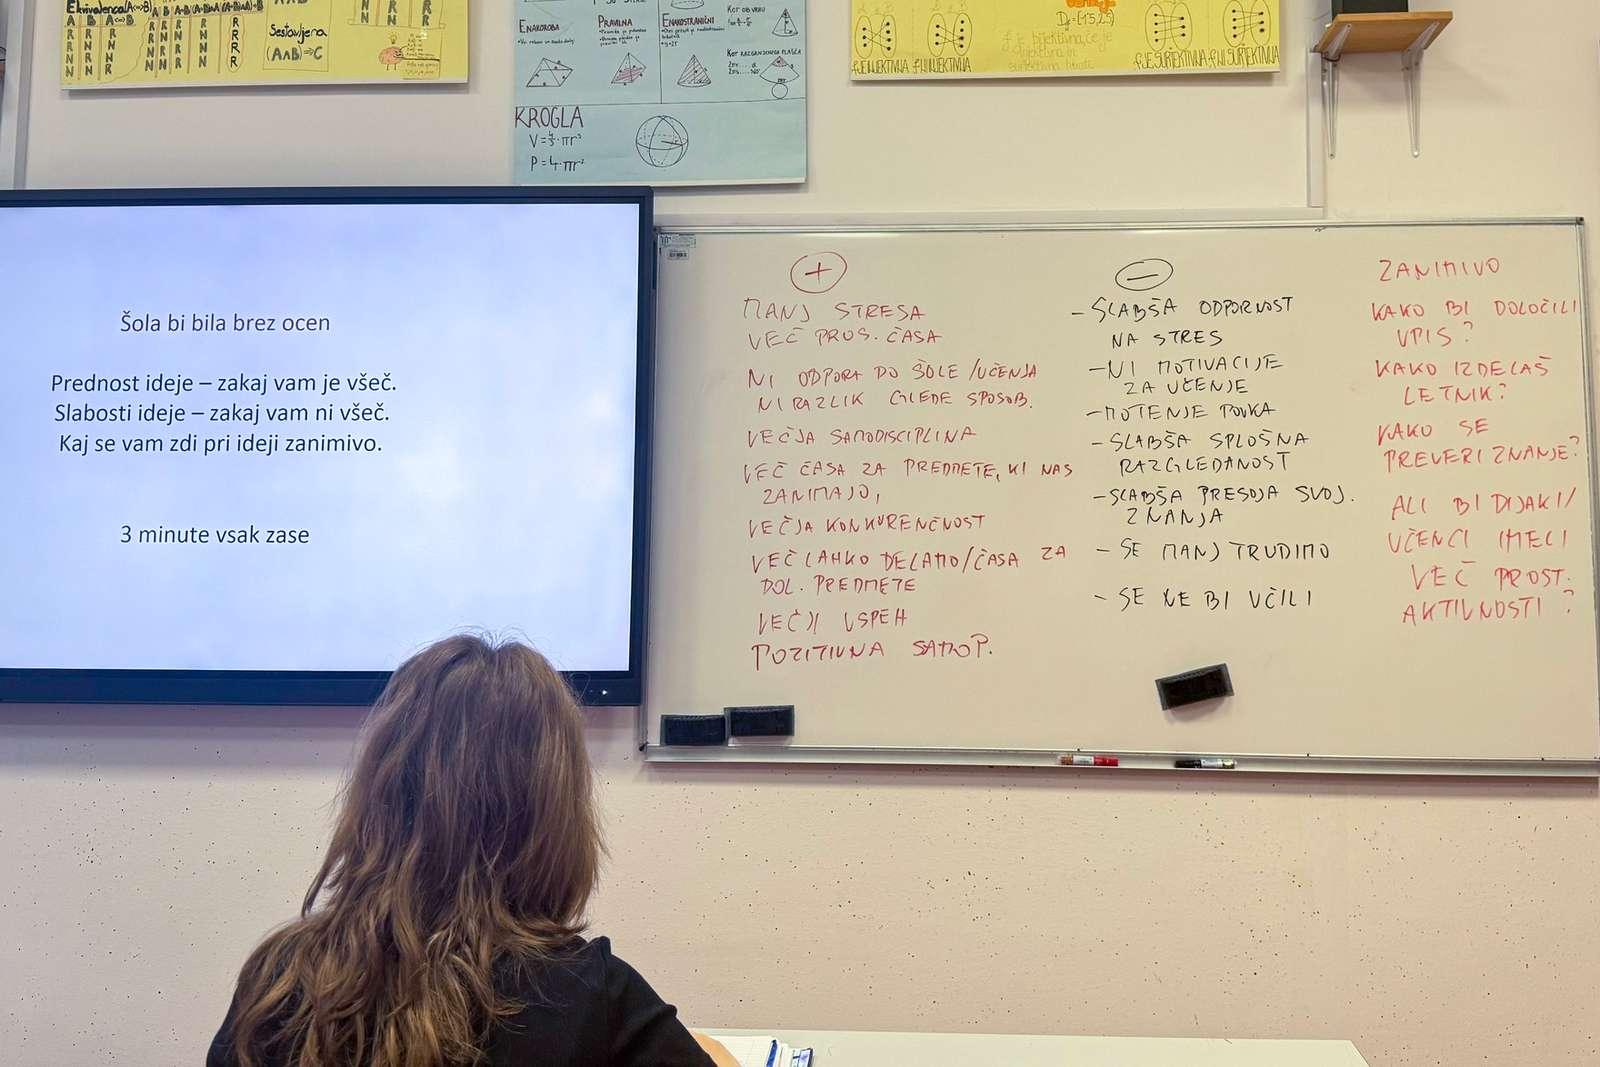 Ekvivalenca (A⇔B)
Sestavljena
(A∧B)⇒C
ENAKOROBA
PRAVILNA
ENAKOSTRANIČNI
KROGLA
V = 4/3 · πr³
P = 4 · πr²
f JE INJEKTIVNA
f NI INJEKTIVNA
f JE SURJEKTIVNA
f NI SURJEKTIVNA
Šola bi bila brez ocen
Prednost ideje – zakaj vam je všeč.
Slabosti ideje – zakaj vam ni všeč.
Kaj se vam zdi pri ideji zanimivo.
3 minute vsak zase
+
MANJ STRESA
VEČ PROS. ČASA
NI ODPORA DO ŠOLE/UČENJA
NI RAZLIK GLEDE SPOSOB.
VEČJA SAMODISCIPLINA
VEČ ČASA ZA PREDMETE, KI NAS
ZANIMAJO,
VEČJA KONKURENČNOST
VEČ LAHKO DELAMO/ČASA ZA
DOL. PREDMETE
VEČJI USPEH
POZITIVNA SAMOP.
–
- SLABŠA ODPORNOST
NA STRES
- NI MOTIVACIJE
ZA UČENJE
- MOTENJE POUKA
- SLABŠA SPLOŠNA
RAZGLEDANOST
- SLABŠA PRESOJA SVOJ.
ZNANJA
- SE MANJ TRUDIMO
- SE NE BI UČILI
ZANIMIVO
KAKO BI DOLOČILI
VPIS?
KAKO IZDELAŠ
LETNIK?
KAKO SE
PREVERI ZNANJE?
ALI BI DIJAKI/
UČENCI IMELI
VEČ PROST.
AKTIVNOSTI?